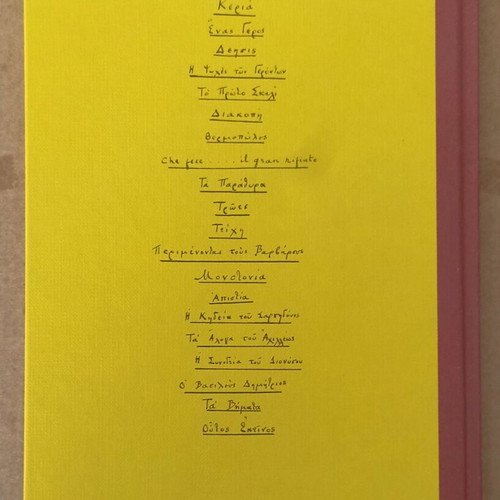 Κεριά
Ένας Γέρος
Δέησις
Η Ψυχές των Γερόντων
Το Πρώτο Σκαλί
Διακοπή
Θερμοπύλες
Che fece .... il gran rifiuto
Τα Παράθυρα
Τρώες
Τείχη
Περιμένοντας τους Βαρβάρους
Μονοτονία
Απιστία
Η Κηδεία του Σαρπηδόνος
Τα Άλογα του Αχιλλέως
Η Συνοδεία του Διονύσου
Ο Βασιλεύς Δημήτριος
Τα Βήματα
Ούτος Εκείνος